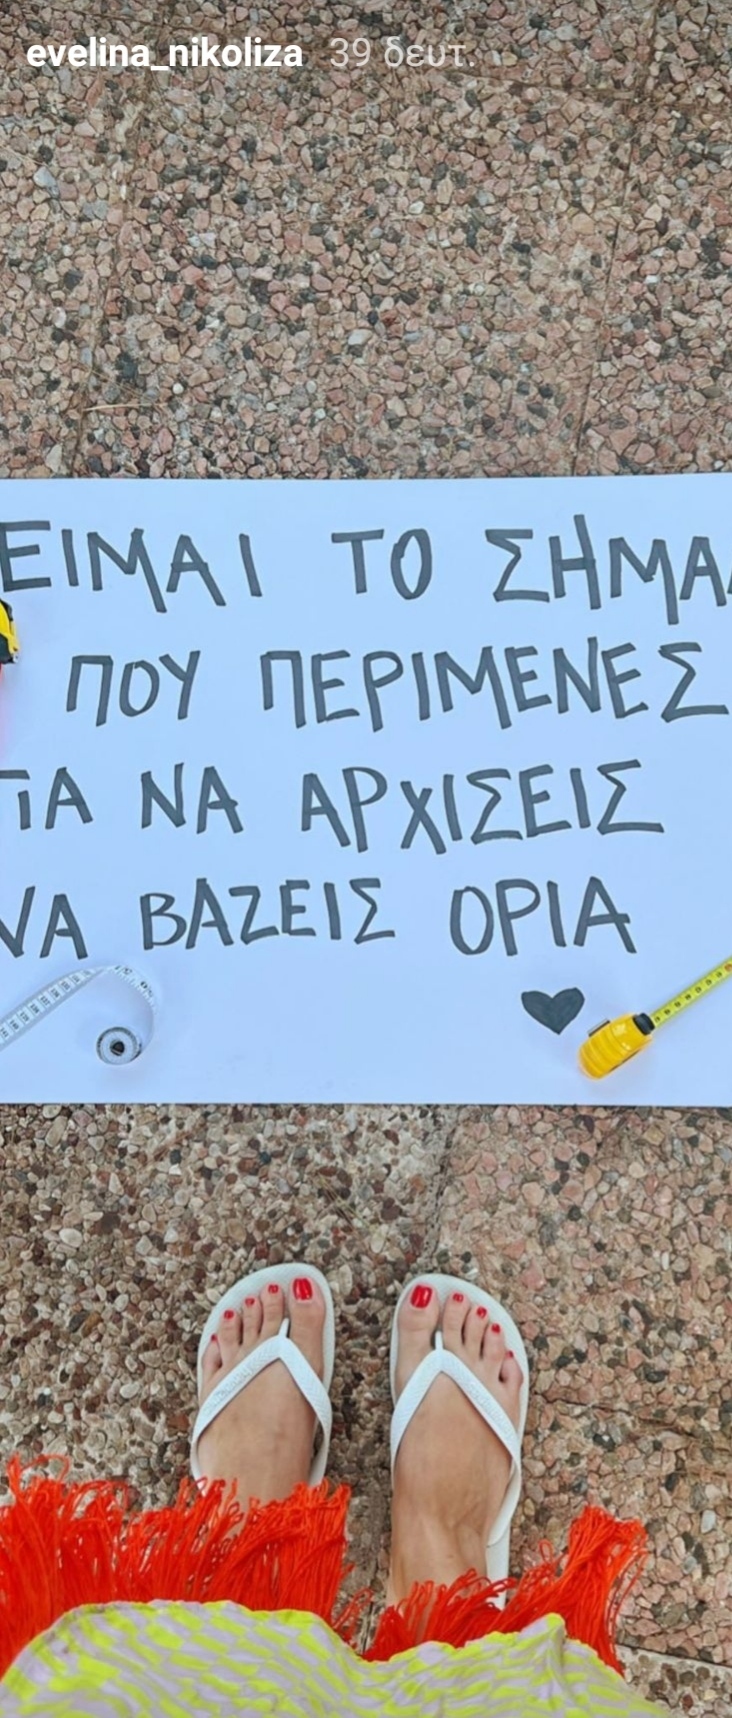 evelina_nikoliza 39 δευτ.
ΕΙΜΑΙ ΤΟ ΣΗΜΑ
ΠΟΥ ΠΕΡΙΜΕΝΕΣ
ΓΙΑ ΝΑ ΑΡΧΙΣΕΙΣ
ΝΑ ΒΑΖΕΙΣ ΟΡΙΑ